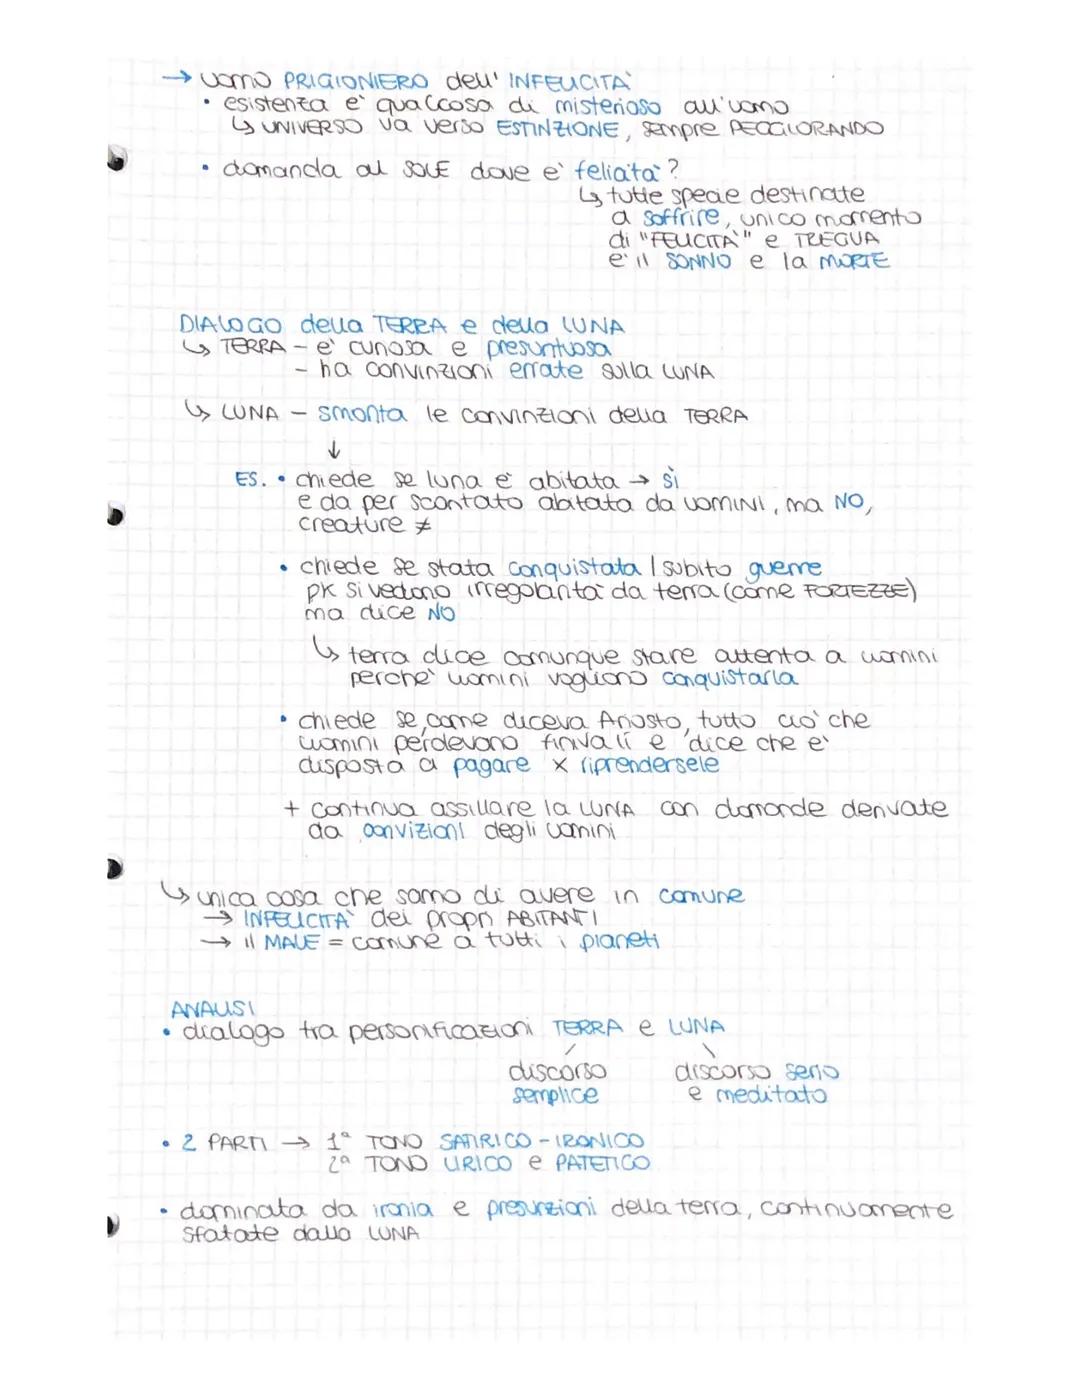 → uomo PRIGIONIERO dell' INFELICITÀ
• esistenza e' qualcosa di misterioso all'uomo
↳ UNIVERSO va verso ESTINZIONE, sempre PEGGIORANDO
• domanda al SOLE dove e' felicità?
↳ tutte specie destinate
a soffrire, unico momento
di "FELICITÀ" e TREGUA
e' il SONNO e la MORTE
DIALOGO della TERRA e della LUNA
↳ TERRA - e' curiosa e presuntuosa
- ha convinzioni errate sulla LUNA
↳ LUNA - smonta le convinzioni della TERRA
↓
ES. • chiede se luna e' abitata → sì
e da per scontato abitata da uomini, ma NO,
creature ≠
• chiede se stata conquistata / subito guerre
pk si vedono irregolarità da terra (come FORTEZZE)
ma dice NO
↳ terra dice comunque stare attenta a uomini
perche' uomini vogliono conquistarla
• chiede se, come diceva Ariosto, tutto cio' che
uomini perdevano finiva lì e dice che e'
disposta a pagare x riprendersele
+ continua assillare la LUNA con domande derivate
da convizioni degli uomini
↳ unica cosa che sanno di avere in comune
→ INFELICITÀ dei propri ABITANTI
→ il MALE = comune a tutti i pianeti
ANALISI
• dialogo tra personificazioni TERRA e LUNA
discorso semplice
discorso serio e meditato
• 2 PARTI → 1ª TONO SATIRICO - IRONICO
2ª TONO LIRICO e PATETICO
• dominata da ironia e presunzioni della terra, continuamente
sfatate dalla LUNA